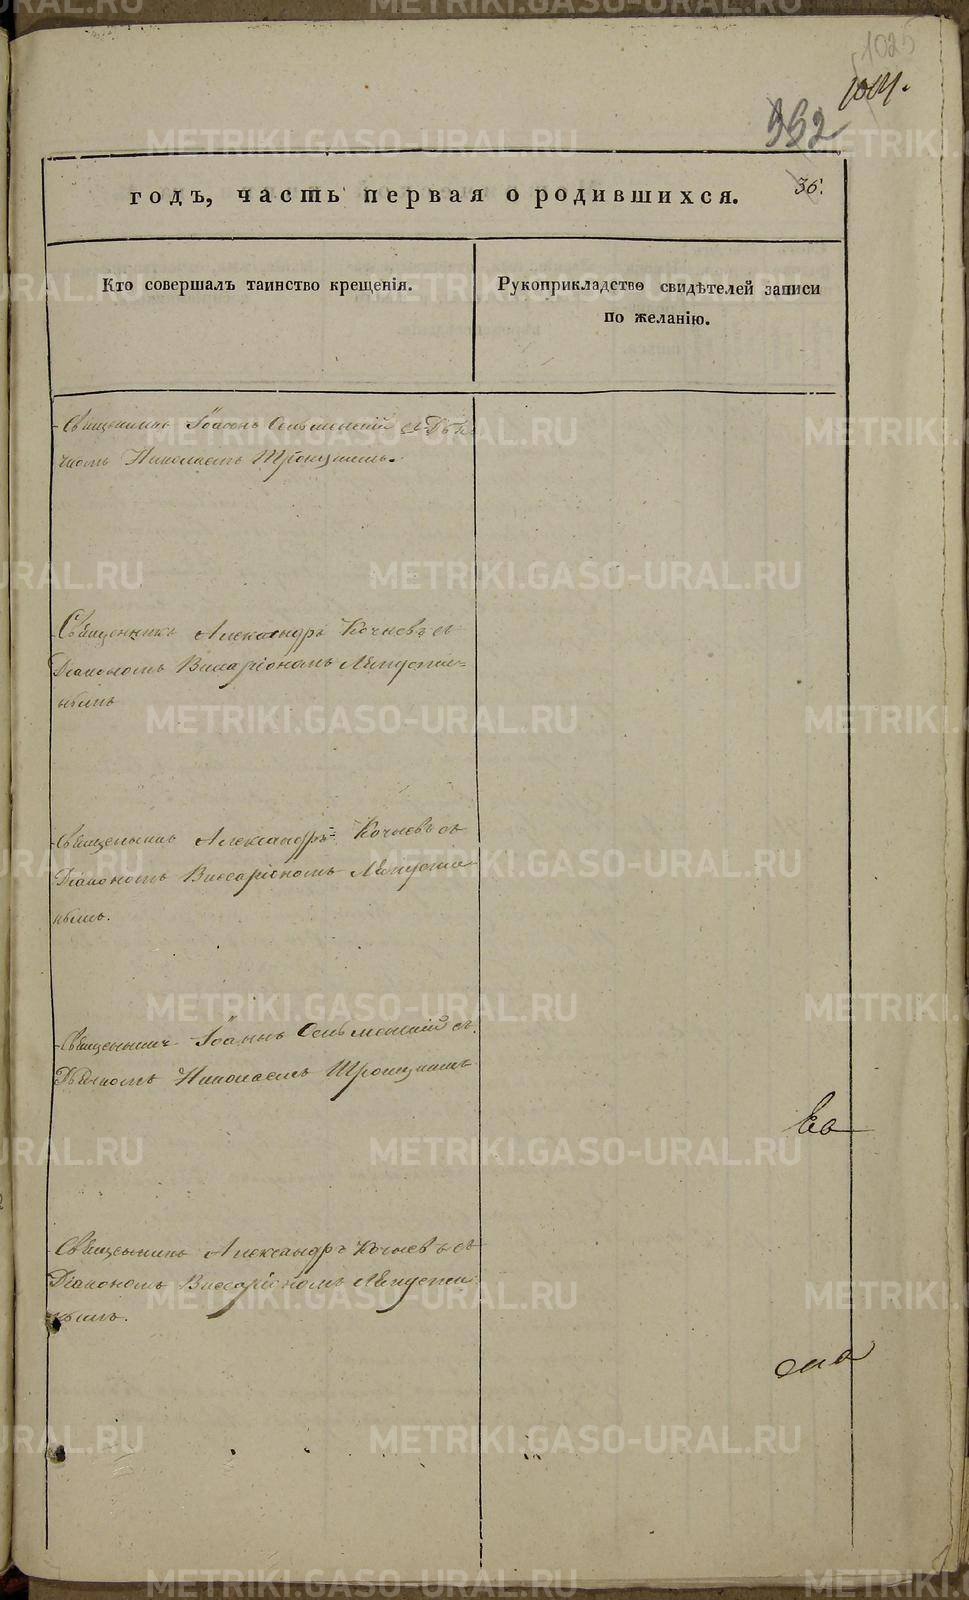 METRIKI.GASO-URAL.RU
992
36.
годъ, часть первая о родившихся.
Кто совершалъ таинство крещенія.
Рукоприкладство свидѣтелей записи
по желанію.
Священникъ Іоаннъ Сельменскій съ Дья-
чкомъ Николаемъ Троицкимъ.
Священникъ Александръ Кочневъ съ
Діакономъ Виссаріономъ
нымъ
Священникъ Александръ Кочневъ съ
Діакономъ Виссаріономъ
нымъ.
Священникъ Іоаннъ Сельменскій съ
Дьячкомъ Николаемъ Троицкимъ
Священникъ Александръ Кочневъ съ
Діакономъ Виссаріономъ
нымъ.